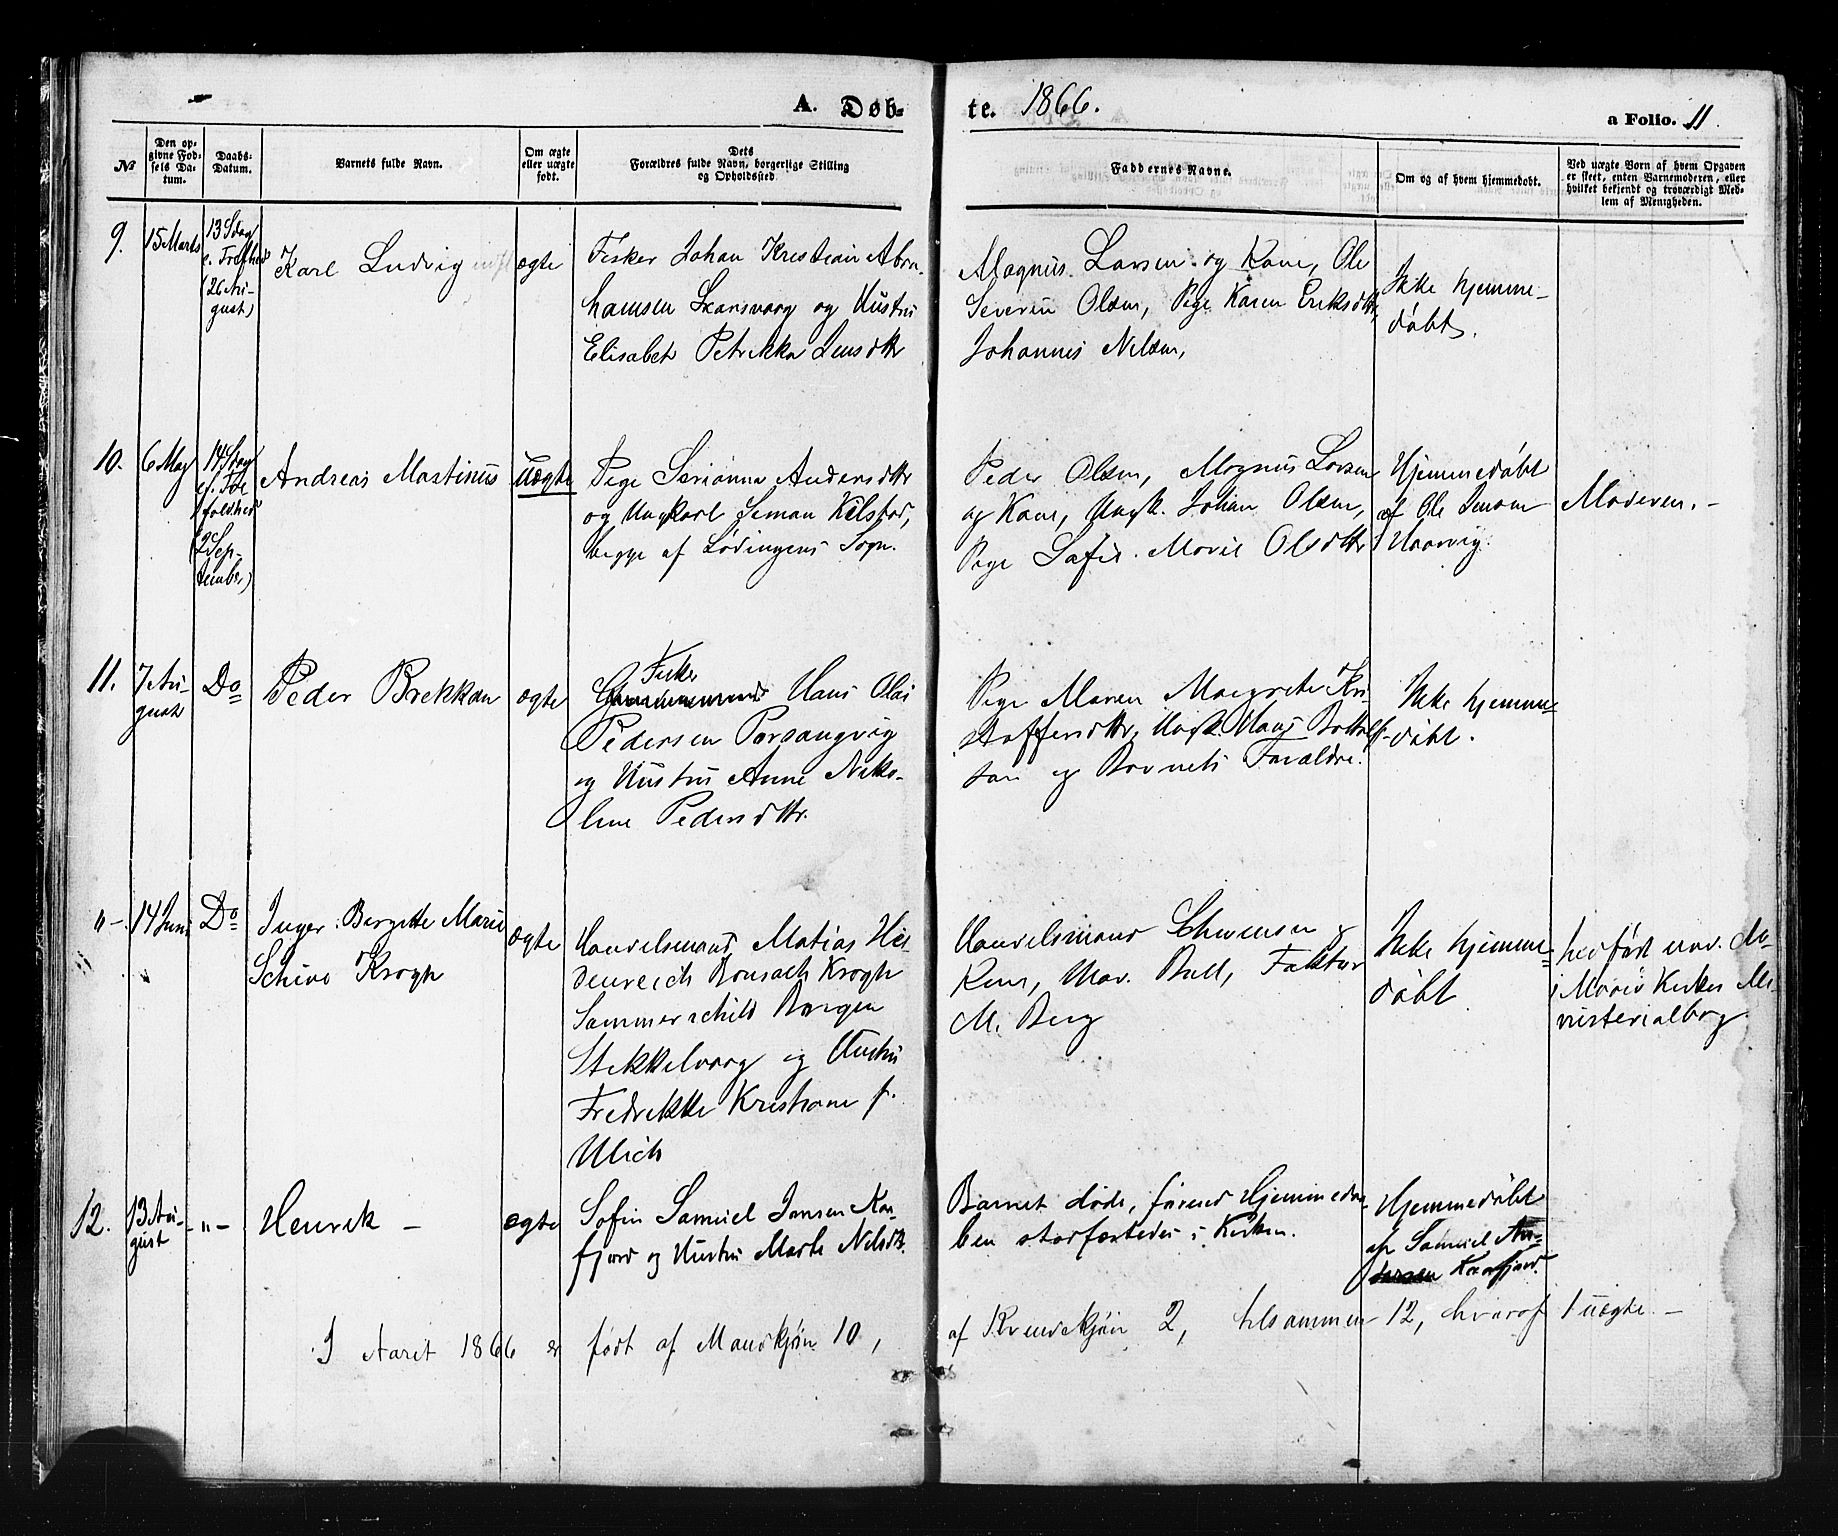 A. Døbte. 1866.
a Folio. 11.
№
Den opgivne Fødsels Datum.
Daabs-Datum.
Barnets fulde Navn.
Om ægte eller uægte født.
Dets Forældres fulde Navn, borgerlige Stilling og Opholdssted.
Faddernes Navne.
Om og af hvem hjemmedøbt.
Ved uægte Børn af hvem Opgaven er skeet, enten Barnemoderen, eller hvilket bekjendt og troværdigt Medlem af Menigheden.
9.
15 Marts
13 Sdag
e. Trefhed
(26 Au-
gust)
Karl Ludvig
ægte
Fisker Johan Kristian Abra-
hamsen Skarsvaag og Hustru
Elisabet Petrikka Jensdtr
Magnus Larsen og Kone, Ole
Severin Olsen, Pige Karen Eriksdtr,
Johannes Nilsen,
Ikke hjemme-
døbt.
10.
6 May
14 Sdag
ef. Tre
foldhed
(2 Sep-
tember)
Andreas Mastinus
uægte
Pige Serianna Andersdtr
og Ungkarl Simon Kilstad,
begge af Lødingens Sogn.
Peder Olsen, Magnus Larsen
og Kone, Ungk. Johan Olsen,
Pige Sofie Marie Olsdtr
Hjemmedøbt
af Ole Jensen
Moderen. -
11.
7 Au-
gust
Do
Peder Brekkan
ægte
Fisker
Hans Olai
Pedersen Porsangvig
og Hustru Anne Niko-
line Pedersdtr.
Pige Maren Margrete Kri
stoffersdtr, Ungk. Hans
sen og Barnets Forældre.
Ikke hjemme-
døbt.
" -
14 Juni
Do
Inger Bergitte Marie
Schive Krogh
ægte
Handelsmand Matias Hei
denreich Bonsach Krogh
Sammerschild Borgen
Stikkelvaag og Hustru
Fredrikke Kristiane f.
Ulich
Handelsmand og
Kone, Bull, Faktor
M. Berg
Ikke hjemme-
døbt
Kirkes Mi
nisterialbog
12.
13 Au-
gust
- " -
Henrik -
ægte
Sofin Samuel Jansen Kaa-
fjord og Hustru Marte Nilsdtr.
Barnet døde, førend Hjemmedaa-
ben stadfæstedes i Kirken.
Hjemmedøbt
af Samuel
Kaafjord.
I Aaret 1866 er født af Mandkjøn 10, af Kvindekjøn 2, tilsammen 12, hvoraf 1 uægte. -